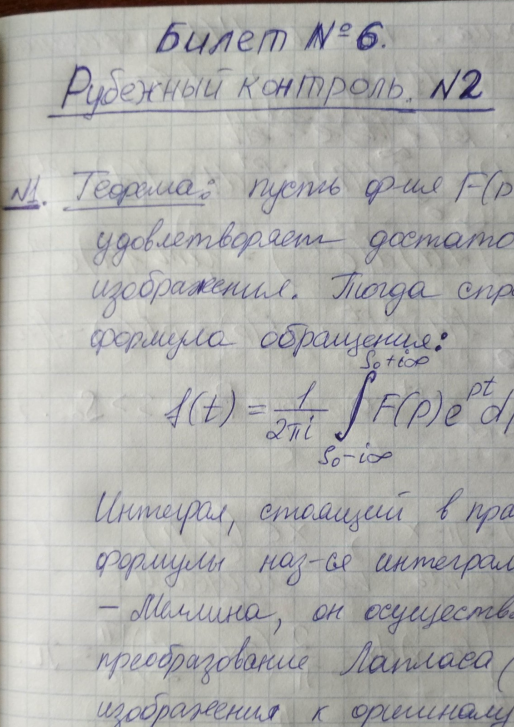 Билет №6.
Рубежный контроль. №2
№1. Теорема: пусть ф-ия F(p
удовлетворяет достато
изображения. Тогда спра
формула обращения:
f(t) = 1/2πi ∫_{S₀-i∞}^{S₀+i∞} F(p)e^{pt}dp
Интеграл, стоящий в пра
формулы наз-ся интеграл
- Меллина, он осуществ
преобразование Лапласа (
изображения к оригиналу